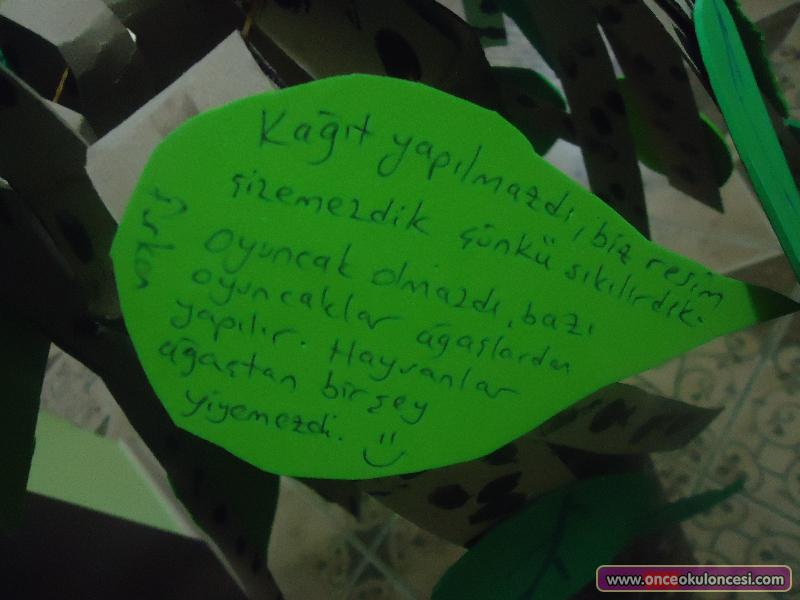 Kağıt yapılmazdı, biz resim
çizemezdik çünkü sıkılırdık.
Oyuncak olmazdı, bazı
oyuncaklar ağaçlardan
yapılır. Hayvanlar
ağaçtan birşey
yiyemezdi.
Furkan
www.onceokuloncesi.com